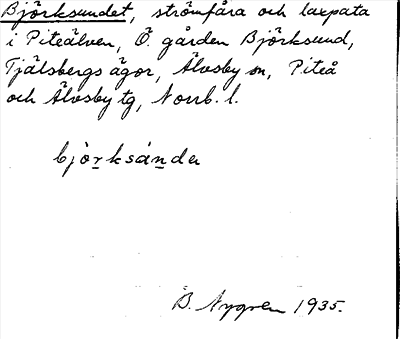 Björksundet, strömfåra och laxpata
i Piteälven, Ö. gården Björksund,
Tjälsbergs ägor, Älvsby sn, Piteå
och Älvsby tg, Norrb. l.
björksánde
B. Nygren 1935.